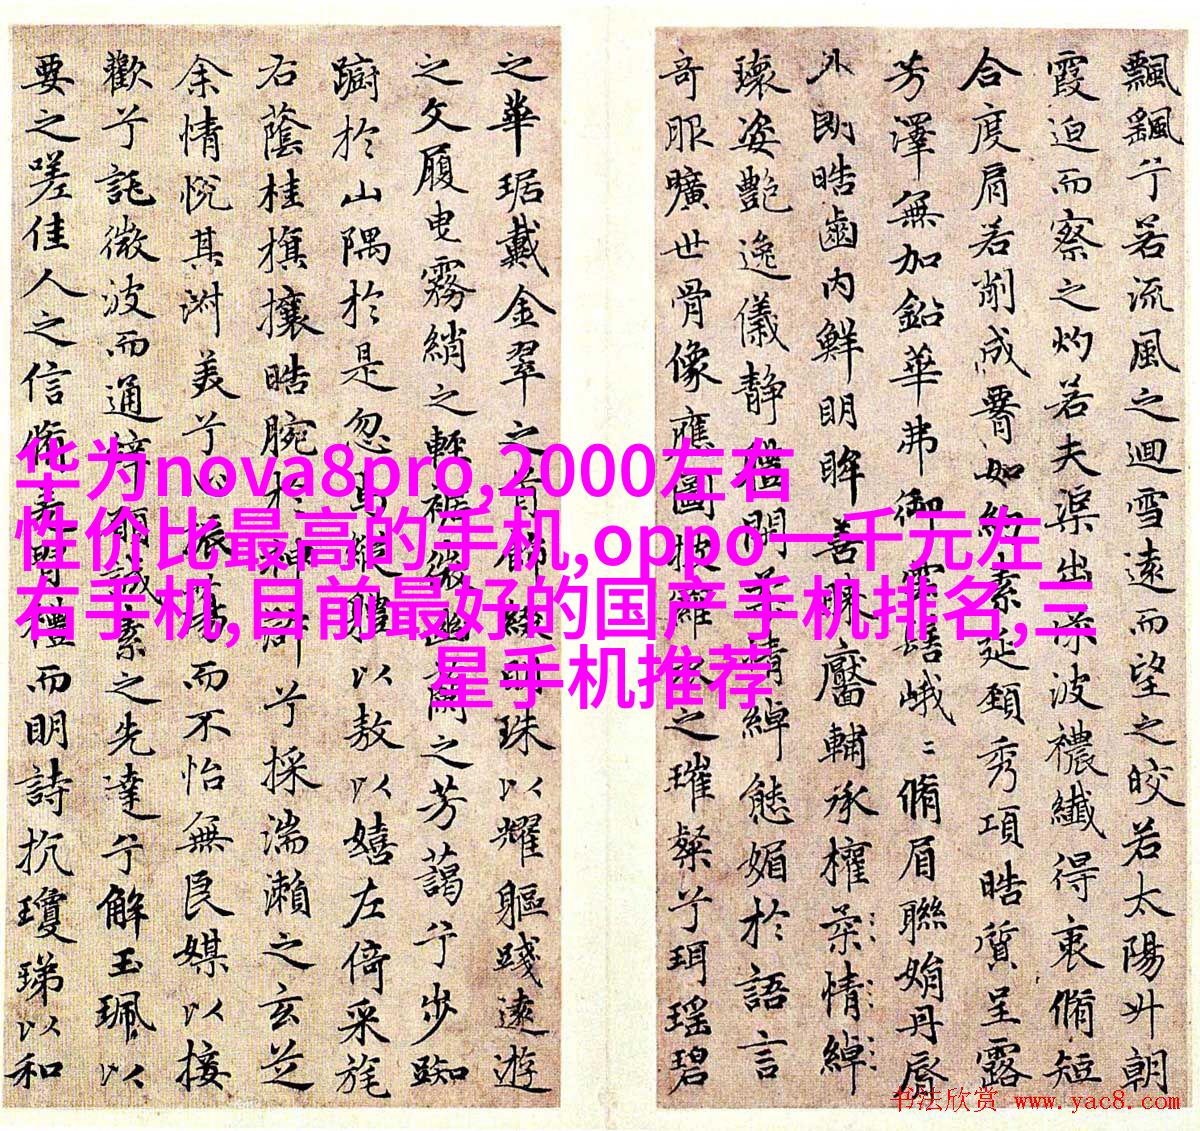 飄飖兮若流風之迴雪遠而望之皎若太陽升朝
霞迫而察之灼若夫渠出淥波襛纖得衷脩短
合度肩若削成腰如約素延頸秀項皓質呈露
芳澤無加鉛華弗御雲髻峨〻脩眉聯娟丹脣
外朗皓齒内鮮明眸善睞靨輔承權柔情綽
瓌姿艷逸儀静體閑柔情綽態媚於語言
奇服曠世骨像應圖披羅衣之璀粲兮珥瑶碧
之華琚戴金翠之首飾綴明珠以耀軀踐遠遊
之文履曳霧綃之輕裾微幽蘭之芳藹兮步踟
蹰於山隅於是忽焉縱體以敖以嬉左倚采旄
右蔭桂旗攘皓腕於神滸兮採湍瀨之玄芝
余情悦其淑美兮心振蕩而不怡無良媒以接
歡兮託微波而通辭願誠素之先達兮解玉珮以
要之嗟佳人之信脩羌習禮而明詩抗瓊珶以和
华为nova8pro,2000左右
性价比最高的手机,oppo一千元左
右手机,目前最好的国产手机排名,三
星手机推荐
书法欣赏 www.yac8.com